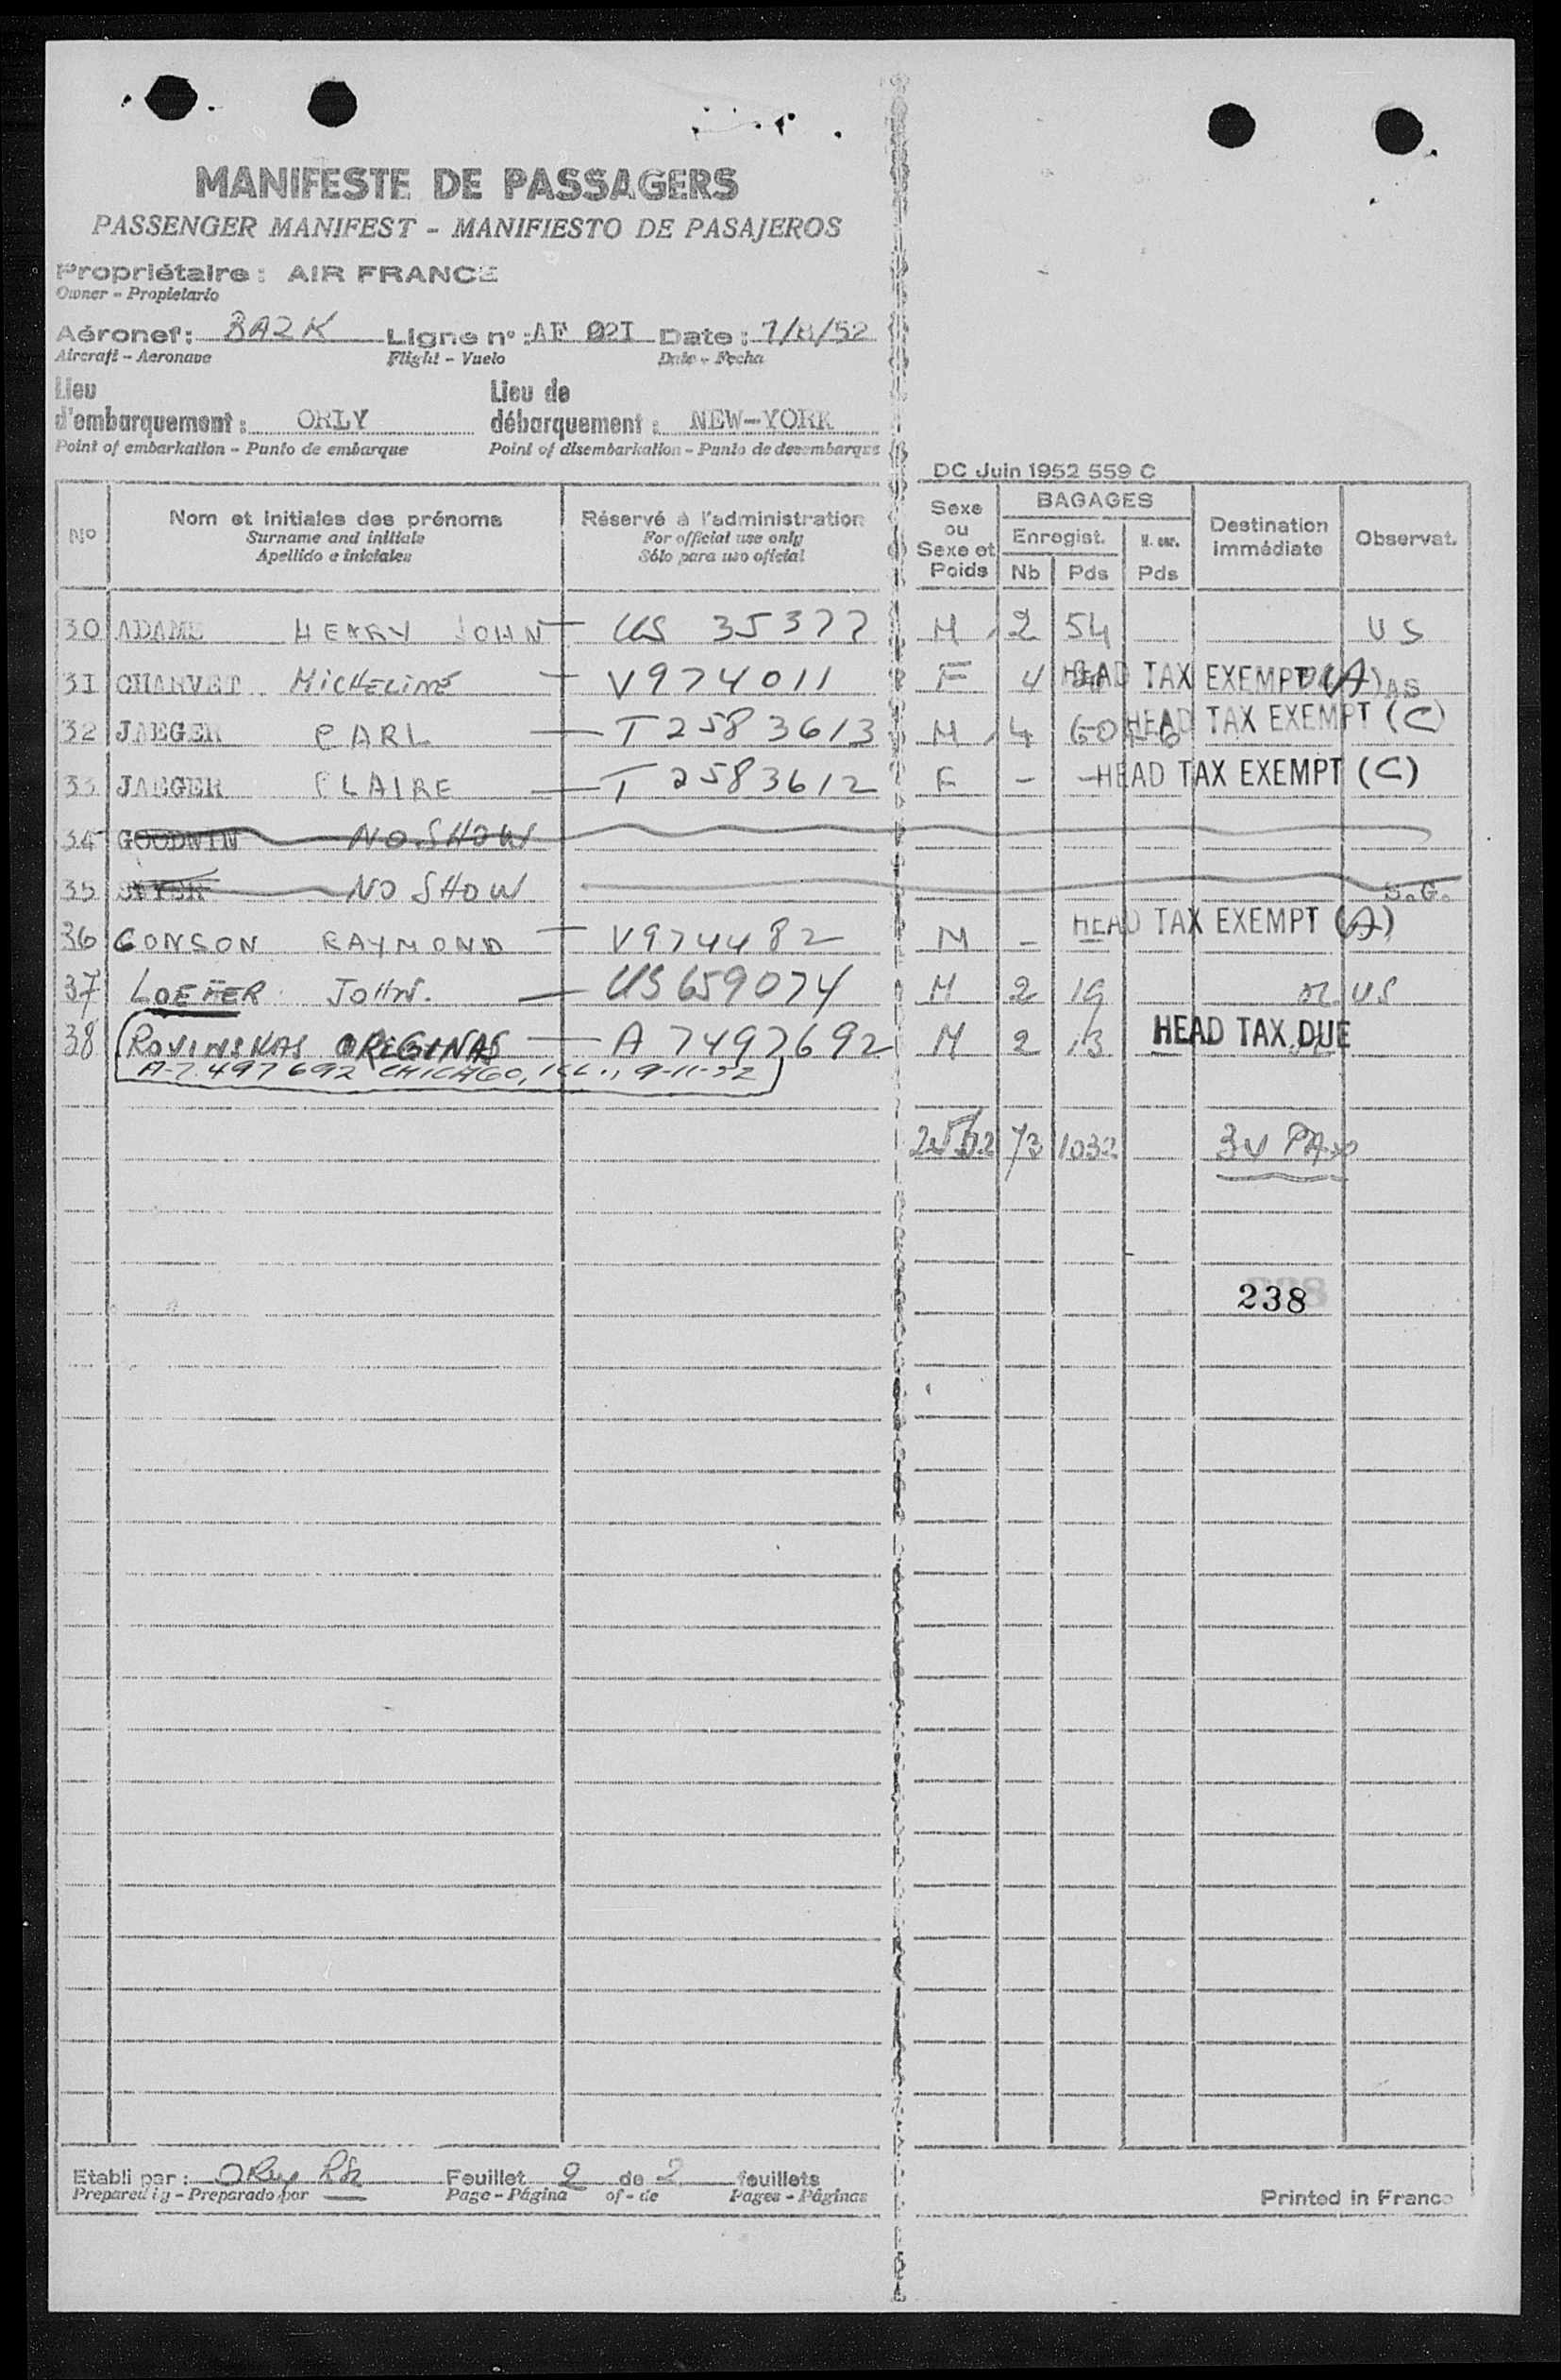 MANIFESTE DE PASSAGERS
PASSENGER MANIFEST - MANIFIESTO DE PASAJEROS
Propriétaire : AIR FRANCE
Owner - Propietario
Aéronef : BAZK Ligne n° : AF 02I Date : 7/8/52
Aircraft - Aeronave Flight - Vuelo Date - Fecha
Lieu d'embarquement : ORLY Lieu de débarquement : NEW-YORK
Point of embarkation - Punto de embarque Point of disembarkation - Punto de desembarque
DC Juin 1952 559 C
No Nom et initiales des prénoms Réservé à l'administration Sexe ou Sexe et Poids BAGAGES Destination immédiate Observat.
Surname and initials For official use only Enregist. N. enr.
Apellido e iniciales Sólo para uso oficial Nb Pds Pds
30 ADAMS HENRY JOHN — US 35377 M 2 54 US
3I CHARVET MICHELINE — V974011 F 4 HEAD TAX EXEMPT (A)
32 JAEGER CARL — T 2583613 M 4 60 HEAD TAX EXEMPT (C)
33 JAEGER CLAIRE — T 2583612 F - - HEAD TAX EXEMPT (C)
34 GOODWIN NO SHOW
35 NO SHOW S.G.
36 GONSON RAYMOND — V974482 M - HEAD TAX EXEMPT (A)
37 LOEFER JOHN. — US 659074 M 2 19 US
38 ROVINSKAS OREGINAS — A 7497692 M 2 13 HEAD TAX DUE
A-7 497 692 CHICAGO, ILL., 9-11-52
73 1032 34 PAX
238
Etabli par : ORLY Feuillet 2 de 2 feuillets
Prepared by - Preparado por Page - Página of - de Pages - Páginas
Printed in France